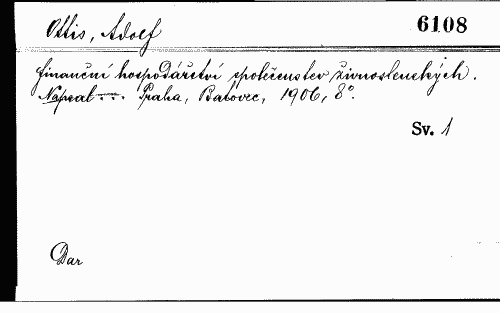 Ottis, Adolf 6108
Finanční hospodářství společenstev živnostenských.
Napsal ... Praha, Batovec, 1906, 8°.
Sv. 1
Dar